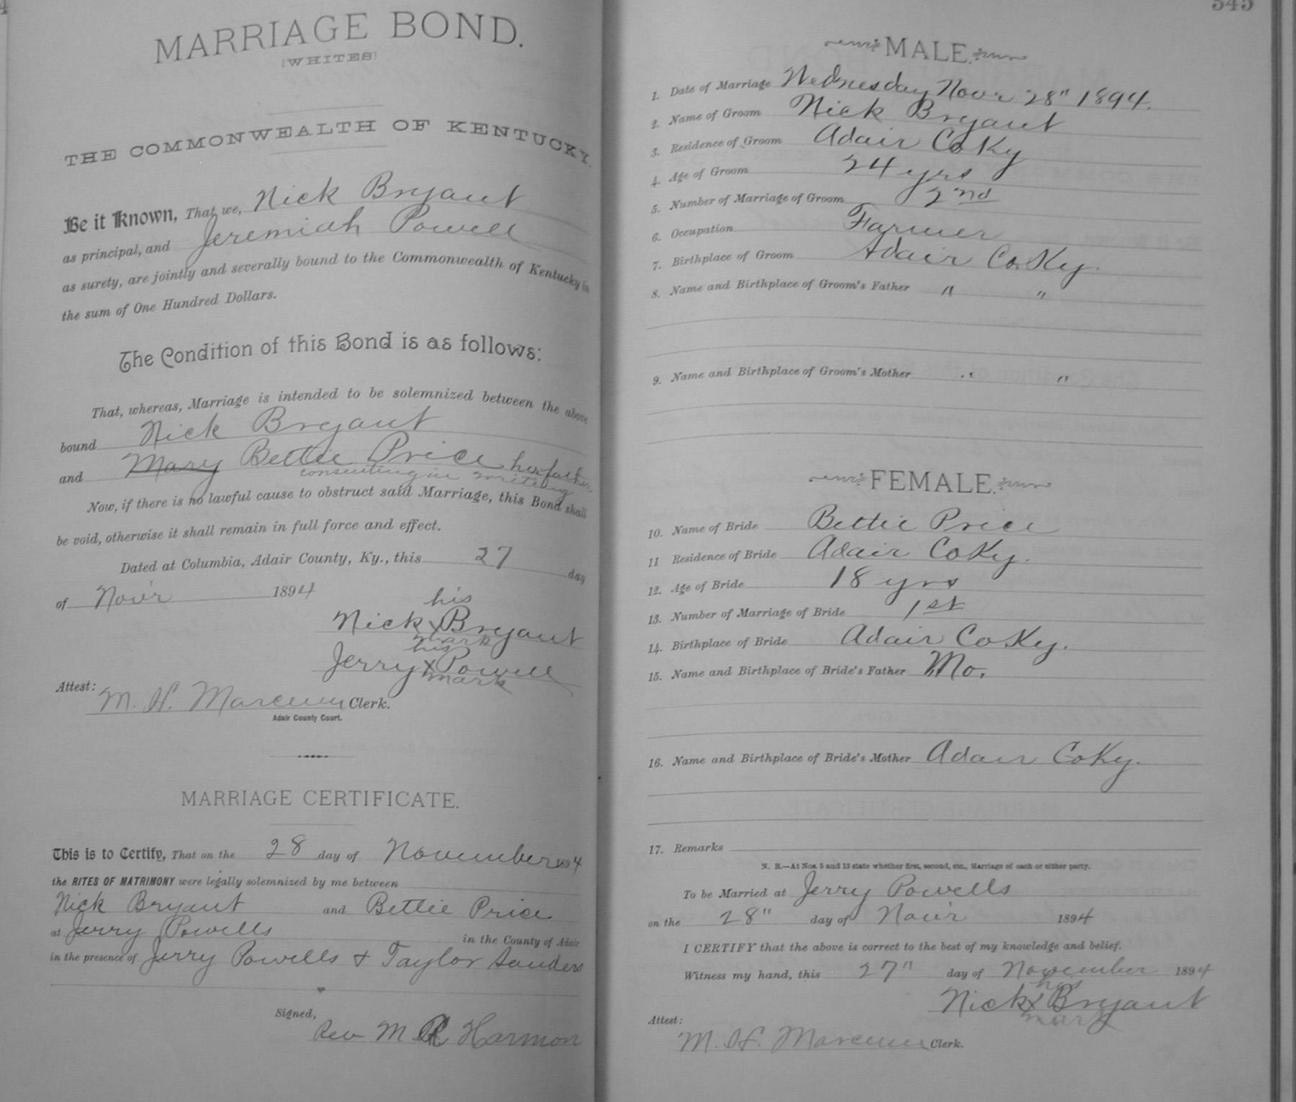 MARRIAGE BOND.
(WHITES)
THE COMMONWEALTH OF KENTUCKY.
Be it Known, That we, Nick Bryant
as principal, and Jeremiah Powell
as surety, are jointly and severally bound to the Commonwealth of Kentucky in
the sum of One Hundred Dollars.
The Condition of this Bond is as follows:
That, whereas, Marriage is intended to be solemnized between the above
bound Nick Bryant
and Mary Bettie Price her father
consenting in writing
Now, if there is no lawful cause to obstruct said Marriage, this Bond shall
be void, otherwise it shall remain in full force and effect.
Dated at Columbia, Adair County, Ky., this 27 day
of Nov'r 1894
his
Nick x Bryant
mark
his
Jerry x Powell
mark
Attest: M. H. Clerk.
Adair County Court.
MARRIAGE CERTIFICATE.
This is to Certify, That on the 28 day of November 1894
the RITES OF MATRIMONY were legally solemnized by me between
Nick Bryant and Bettie Price
at Jerry Powells in the County of Adair
in the presence of Jerry Powells & Taylor Sanders
Signed,
Rev M R Harmon
545
MALE.
1. Date of Marriage Wednesday Novr 28" 1894.
2. Name of Groom Nick Bryant
3. Residence of Groom Adair Co Ky
4. Age of Groom 24 yrs
5. Number of Marriage of Groom 2nd
6. Occupation Farmer
7. Birthplace of Groom Adair Co. Ky.
8. Name and Birthplace of Groom's Father " "
9. Name and Birthplace of Groom's Mother " "
FEMALE.
10. Name of Bride Bettie Price
11 Residence of Bride Adair Co Ky.
12. Age of Bride 18 yrs
13. Number of Marriage of Bride 1st
14. Birthplace of Bride Adair Co Ky.
15. Name and Birthplace of Bride's Father Mo.
16. Name and Birthplace of Bride's Mother Adair Co Ky.
17. Remarks
N. B.—At Nos. 5 and 13 state whether first, second, etc., Marriage of each or either party.
To be Married at Jerry Powells
on the 28" day of Nov'r 1894
I CERTIFY that the above is correct to the best of my knowledge and belief.
Witness my hand, this 27" day of November 1894
his
Nick x Bryant
mark
Attest:
M. H. Clerk.